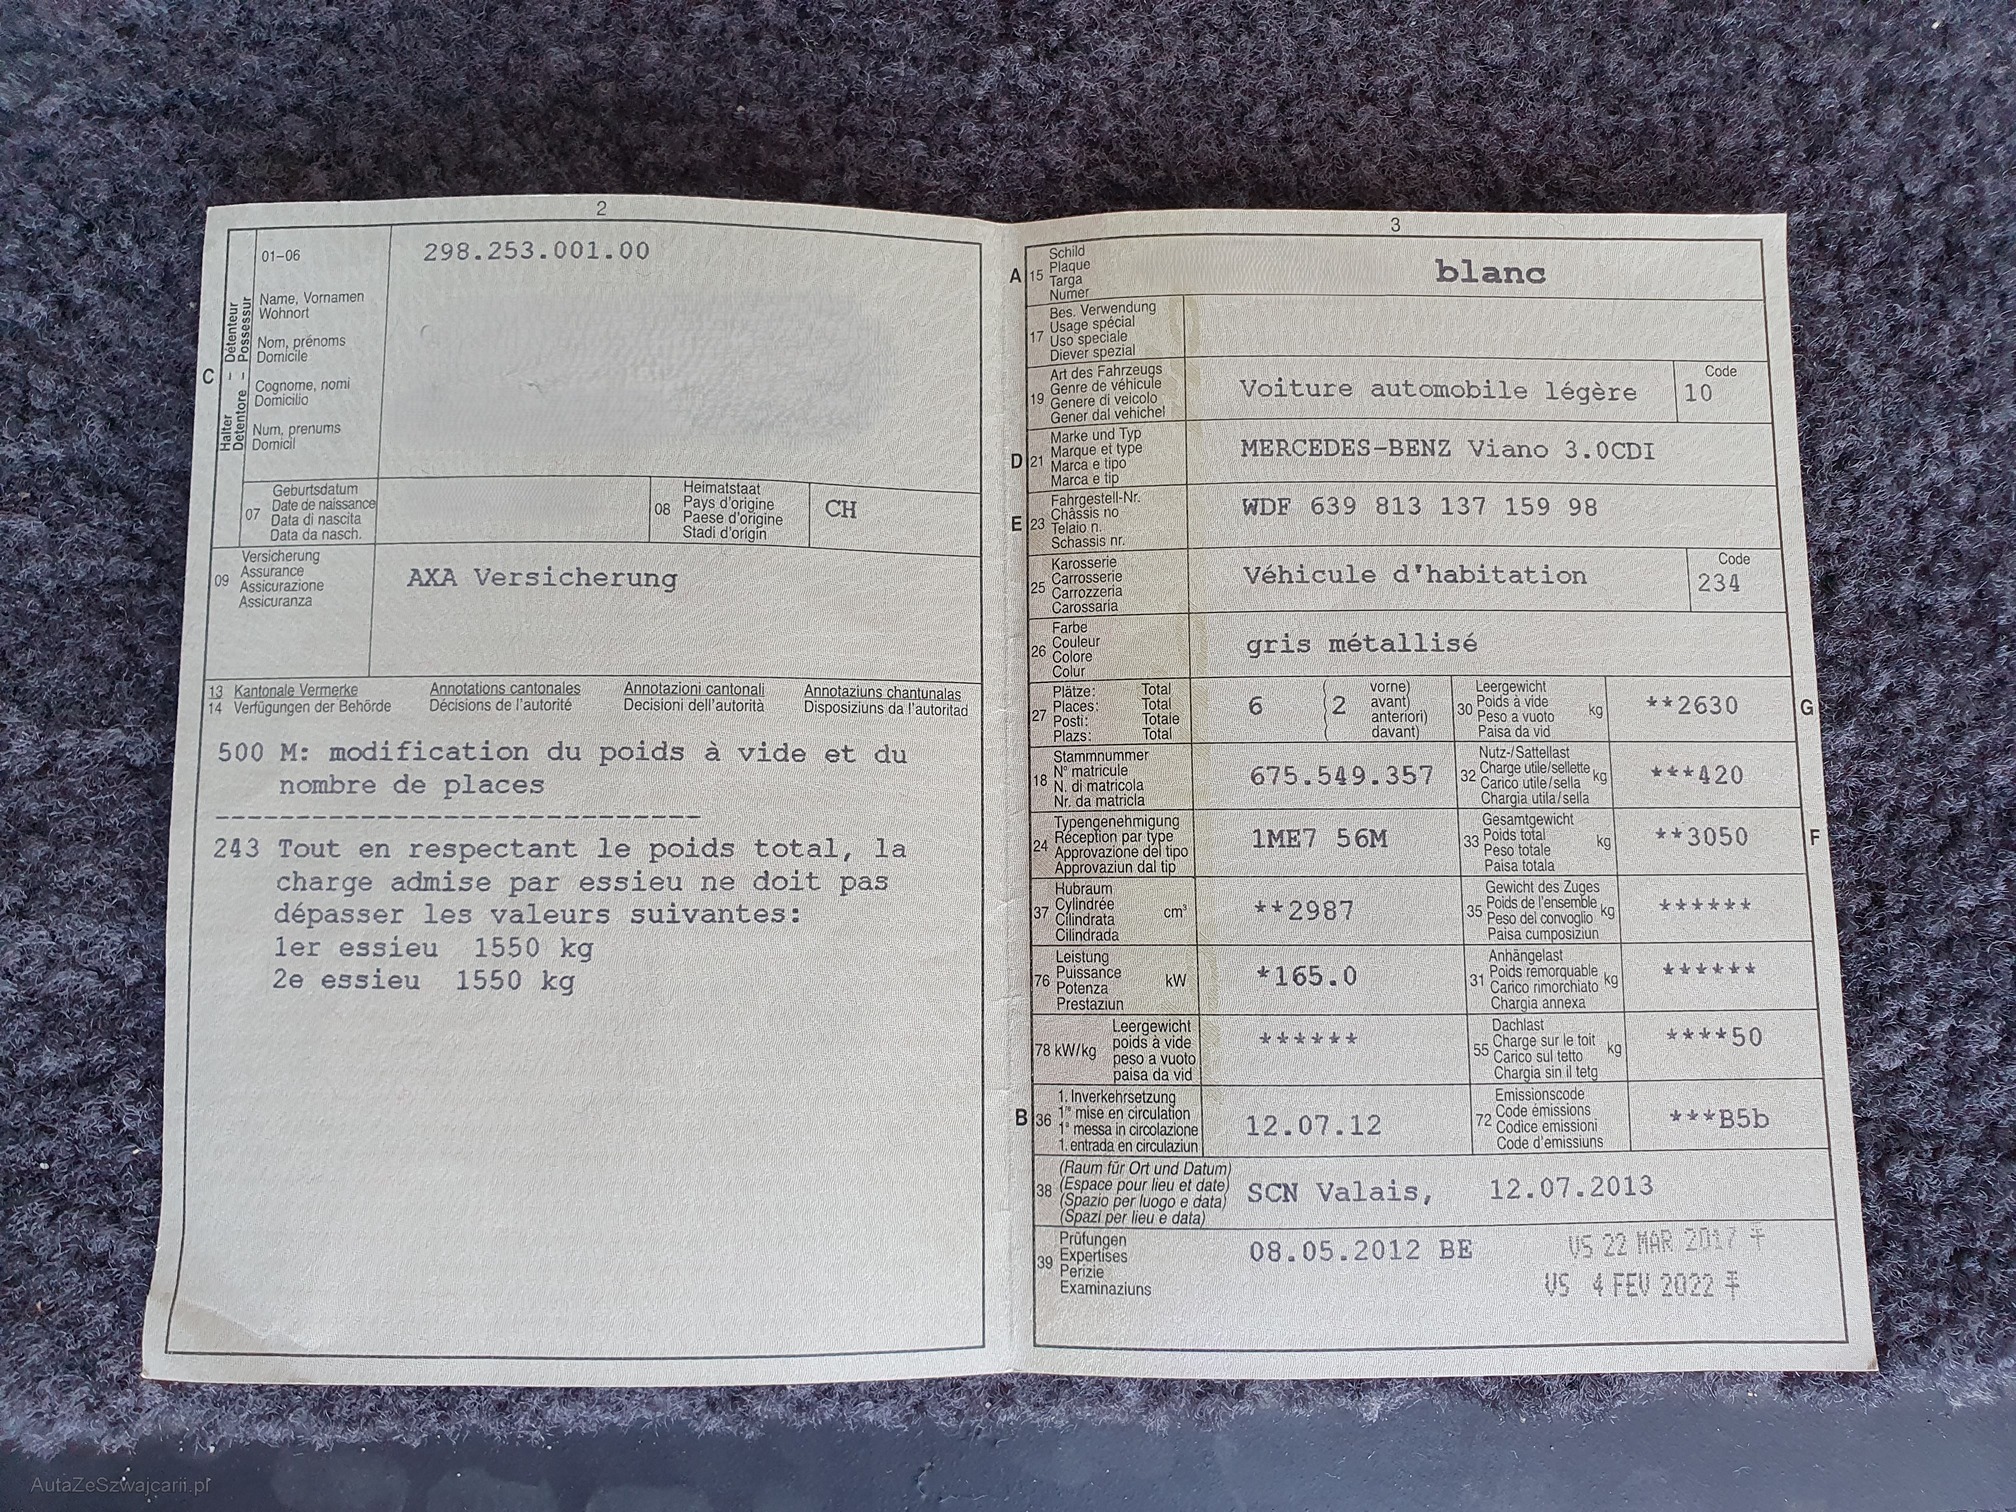 2
01-06
298.253.001.00
C
Halter – Détenteur
Detentore – Possessur
Name, Vornamen
Wohnort
Nom, prénoms
Domicile
Cognome, nomi
Domicilio
Num, prenums
Domicil
07
Geburtsdatum
Date de naissance
Data di nascita
Data da nasch.
08
Heimatstaat
Pays d'origine
Paese d'origine
Stadi d'origin
CH
09
Versicherung
Assurance
Assicurazione
Assicuranza
AXA Versicherung
13 Kantonale Vermerke Annotations cantonales Annotazioni cantonali Annotaziuns chantunalas
14 Verfügungen der Behörde Décisions de l'autorité Decisioni dell'autorità Disposiziuns da l'autoritad
500 M: modification du poids à vide et du
nombre de places
------------------------------
243 Tout en respectant le poids total, la
charge admise par essieu ne doit pas
dépasser les valeurs suivantes:
1er essieu 1550 kg
2e essieu 1550 kg
3
A 15
Schild
Plaque
Targa
Numer
blanc
17
Bes. Verwendung
Usage spécial
Uso speciale
Diever spezial
19
Art des Fahrzeugs
Genre de véhicule
Genere di veicolo
Gener dal vehichel
Voiture automobile légère
Code
10
D 21
Marke und Typ
Marque et type
Marca e tipo
Marca e tip
MERCEDES-BENZ Viano 3.0CDI
E 23
Fahrgestell-Nr.
Châssis no
Telaio n.
Schassis nr.
WDF 639 813 137 159 98
25
Karosserie
Carrosserie
Carrozzeria
Carossaria
Véhicule d'habitation
Code
234
26
Farbe
Couleur
Colore
Colur
gris métallisé
27
Plätze: Total
Places: Total
Posti: Totale
Plazs: Total
6
2
vorne)
avant)
anteriori)
davant)
30
Leergewicht
Poids à vide
Peso a vuoto
Paisa da vid
kg
**2630
G
18
Stammnummer
N° matricule
N. di matricola
Nr. da matricla
675.549.357
32
Nutz-/Sattellast
Charge utile/sellette
Carico utile/sella
Chargia utila/sella
kg
***420
24
Typengenehmigung
Réception par type
Approvazione del tipo
Approvaziun dal tip
1ME7 56M
33
Gesamtgewicht
Poids total
Peso totale
Paisa totala
kg
**3050
F
37
Hubraum
Cylindrée
Cilindrata
Cilindrada
cm³
**2987
35
Gewicht des Zuges
Poids de l'ensemble
Peso del convoglio
Paisa cumposiziun
kg
******
76
Leistung
Puissance
Potenza
Prestaziun
kW
*165.0
31
Anhängelast
Poids remorquable
Carico rimorchiato
Chargia annexa
kg
******
78 kW/kg
Leergewicht
poids à vide
peso a vuoto
paisa da vid
******
55
Dachlast
Charge sur le toit
Carico sul tetto
Chargia sin il tetg
kg
****50
B 36
1. Inverkehrsetzung
1re mise en circulation
1a messa in circolazione
1. entrada en circulaziun
12.07.12
72
Emissionscode
Code émissions
Codice emissioni
Code d'emissiuns
***B5b
38
(Raum für Ort und Datum)
(Espace pour lieu et date)
(Spazio per luogo e data)
(Spazi per lieu e data)
SCN Valais, 12.07.2013
39
Prüfungen
Expertises
Perizie
Examinaziuns
08.05.2012 BE
VS 22 MAR 2017
VS 4 FEV 2022
AutaZeSzwajcarii.pl